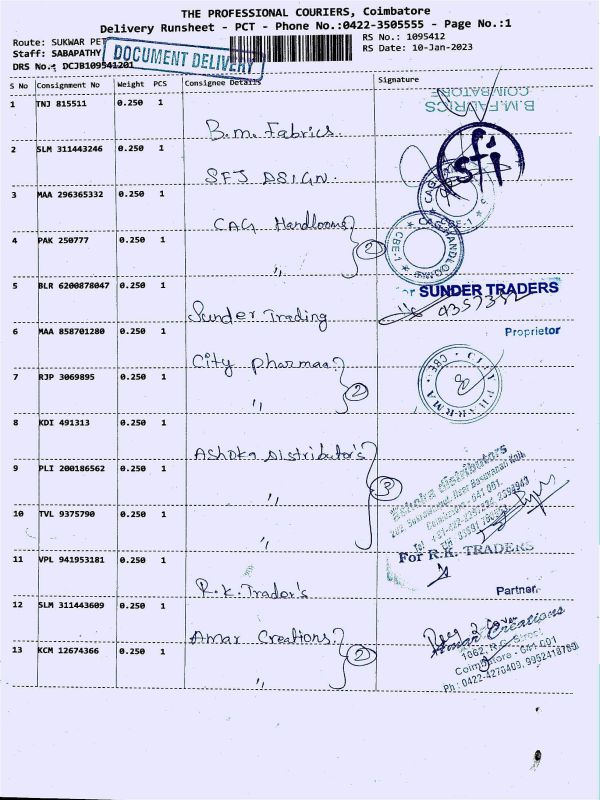 THE PROFESSIONAL COURIERS, Coimbatore
Delivery Runsheet - PCT - Phone No.:0422-3505555 - Page No.:1
Route: SUKWAR PET
RS No.: 1095412
Staff: SABAPATHY
RS Date: 10-Jan-2023
DOCUMENT DELIVERY
DRS No.: DCJB109541201
S No Consignment No Weight PCS Consignee Details Signature
1 TNJ 815511 0.250 1
B.M.FABRICS
COIMBATORE
B.m. Fabrics.
2 SLM 311443246 0.250 1
sfj
SFJ DSIGN.
3 MAA 296365332 0.250 1
CAG Handlooms } 2
4 PAK 250777 0.250 1
CAG HANDLOOMS CBE-1
"
5 BLR 6200878047 0.250 1
For SUNDER TRADERS
Sunder Trading
6 MAA 858701280 0.250 1
Proprietor
City pharmaa. } 2
7 RJP 3069895 0.250 1
CITY PHARMA CBE
"
8 KDI 491313 0.250 1
Ashoka Distributor's } 3
9 PLI 200186562 0.250 1
Ashoka distributors
"
10 TVL 9375790 0.250 1
Coimbatore - 641 001.
"
For R.K. TRADERS
11 VPL 941953181 0.250 1
R.K. Trador's
Partner.
12 SLM 311443609 0.250 1
Amar Creations. } 2
Amar Creations
1062, R.G. Street
13 KCM 12674366 0.250 1
Coimbatore - 641 001
"
Ph : 0422-4270409,